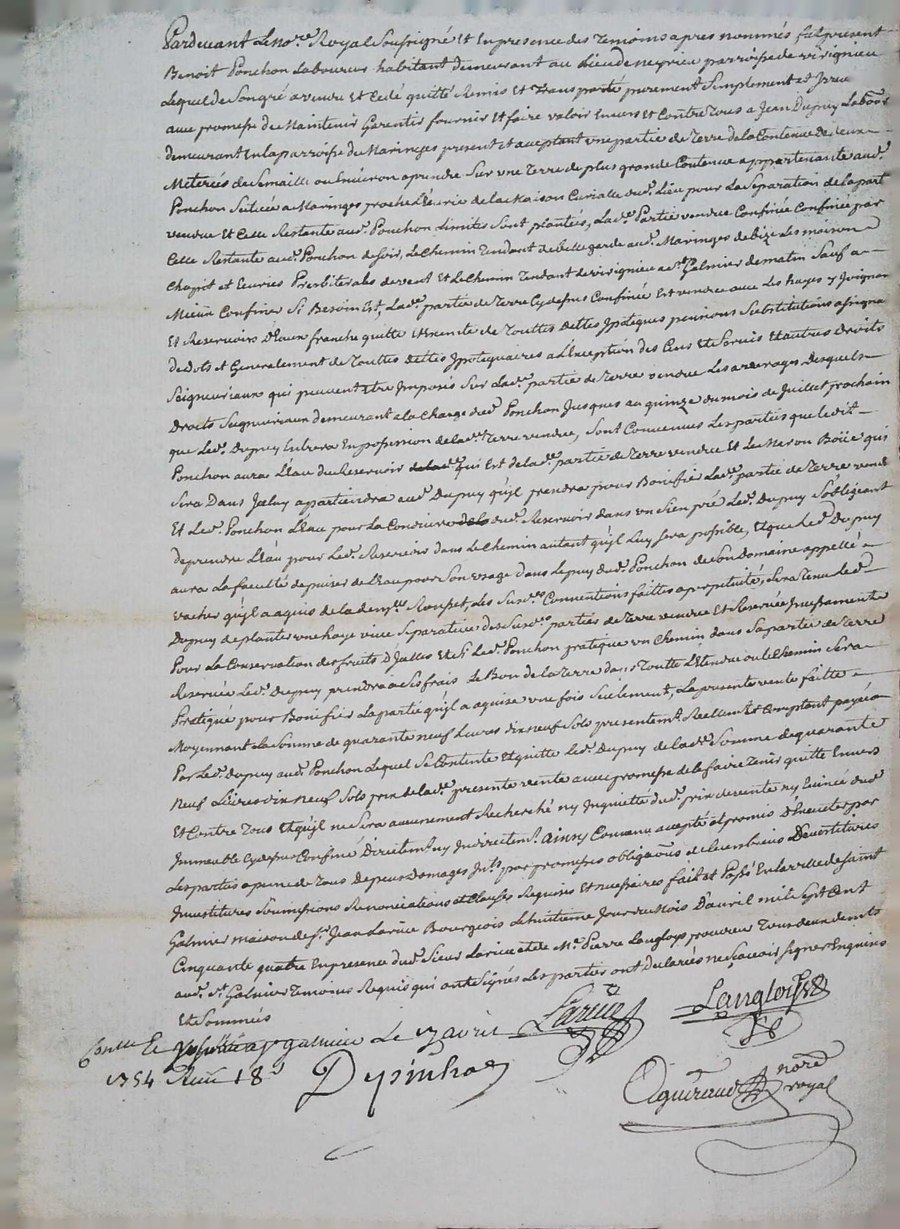 Pardevant Le no.re Royal Soussigné Et En presence des Temoins apres nommés fut present
Benoit Ponchon Laboureur habitant demeurant au Lieu de neyrieu parroisse de virignieu
Lequel de Son gré a vendu Et Cedé quitté Remis et Transporté purement Simplement et
avec promesse de Maintenir Garentir fournir Et faire valoir Envers Et Contre Tous a Jean Dupuy Labour
demeurant En la parroisse de Maringes present et acceptant une partie de Terre de la Contenue de deux
Meterées de Semaille ou Environ a prendre Sur une Terre de plus grande Contenue appartenante aud.
Ponchon Scituée a Maringes proche L'Ecurie de la Maison Curialle dud. Lieu pour La Separation de la part
vendue Et Celle Restante aud. Ponchon Limites Sont plantés, Lad.e Partie vendue Confinée Confinée par
Celle Restante aud. Ponchon de Soir, Le Chemin Tendant de bellegarde aud. Maringes de bize Les maison
Chapot et Ecuries Presbiterales de vent Et Le Chemin Tendant de virignieu a S.t Galmier de matin Sauf a
Mieux Confiner Si Besoin Est, Lad.e partie de Terre Cy dessus Confinée Est vendue avec Les hayes y Joignan
Et Reservoirs D'Eaux franche quitte Et Exemte de Touttes dettes Ipoteques pensions Substitutions
de Dots et Generalement de Touttes dettes Ipotequaires a L'Exception des Cens Et Servis Et autres droits
Seigneuriaux qui peuvent Etre Imposés Sur Lad.e partie de Terre vendue Les arrerages Desquels
Droits Seigneuriaux demeurant a la Charge dud. Ponchon Jusques au quinze du mois de Juillet prochain
que Led. Dupuy Entrera En possession de lad.e Terre vendue, Sont Convenues Les parties que ledit
Ponchon aura L'Eau du Reservoir qui Est de lad.e partie de Terre vendue Et Le Maron Boüe qui
Sera Dans Jceluy appartiendra aud. Dupuy qu'jl prendra pour Bonifier Lad.e partie de Terre vend
Et Led. Ponchon L'Eau pour La Conduire dud. Reservoir dans un Sien pré Led. Dupuy S'obligeant
de prendre L'Eau pour Led. Reservoir dans Le Chemin autent qu'jl Luy Sera possible, Et que Led. Dupuy
aura La faculté de puiser de L'Eau pour Son usage dans Le puy dud. Ponchon de Son Domaine appellé
vacher qu'jl a aquis de la dem.lle Roupet, Les Susd.es Conventions faittes a perpetuité, Sera Tenu Led.
Dupuy de planter une haye vive Separative des Susd.es parties de Terre vendue Et Reservée Incessamente
Pour La Conservation des fruits D'Jcelles Et Si Led. Ponchon pratique un Chemin dans Sa partie de Terre
Reservée Led. Dupuy prendra a Ses frais Le Bon de la Terre dans Toutte L'Etendue ou le Chemin Sera
Pratiqué pour Bonifier La partie qu'jl a aquise une fois Seulement, La presente vente faitte
Moyennant La Somme de quarante neuf Livres dix neuf Sols presentem.t Reellem.t et Comptant payée
Par Led. Dupuy aud. Ponchon Lequel Se Contente Et quitte Led. Dupuy de lad.e Somme de quarante
Neuf Livres dix neuf Sols prix de lad.e presente vente avec promesse de le faire Tenir quitte Envers
Et Contre Tous Et qu'jl ne Sera aucunement Recherché ny Inquieté dud. prix de vente ny Evincé dud.
Immeuble Cy dessus Confiné Directem.t ny Indirectem.t Ainsy Convenu accepté et promis D'Executer par
Les parties a peine de Tous Depens Domages Jnt.s par promesses obligaõns de Leurs biens Devestitures
Jnvestitures Soumissions Renonciations et Clauses Requises Et necessaires fait et Passé En la ville de Saint
Galmier maison de S.r Jean Larüe Bourgeois Le huitieme Jour du Mois D'avril mil Sept Cent
Cinquante quatre En presence dud. Sieur Larüe et de M.e Pierre Langloys procureur Tous deux dem.ts
aud. S.t Galmier Temoins Requis qui ont Signés Les parties ont Declarées ne Sçavoir Signer Enquises
Et Sommés
Larüe
Langlois
galmier Le 17 avril
1754 Recu 18 s
Depinhac
nore
royal